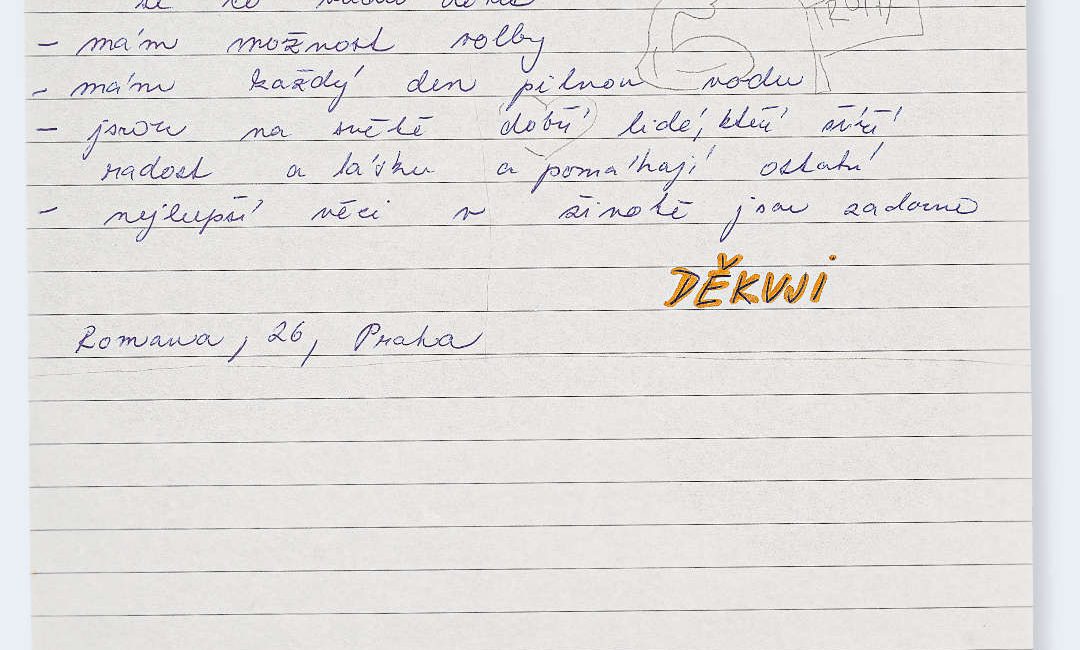 - mám možnost volby
- mám každý den pitnou vodu
- jsou na světě dobří lidé, kteří šíří
radost a lásku a pomáhají ostatní
- nejlepší věci v životě jsou zadarmo
DĚKUJI
Romana, 26, Praha